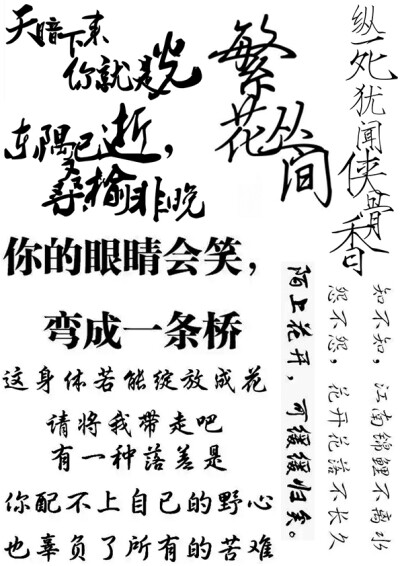 天暗下来
你就是光
东隅已逝，
桑榆非晚
繁
花丛
间
纵死犹闻侠骨香
你的眼睛会笑，
弯成一条桥
陌上花开，可缓缓归矣。
知不知，江南锦鲤不离水
怨不怨，花开花落不长久
这身体若能绽放成花
请将我带走吧
有一种落差是
你配不上自己的野心
也辜负了所有的苦难